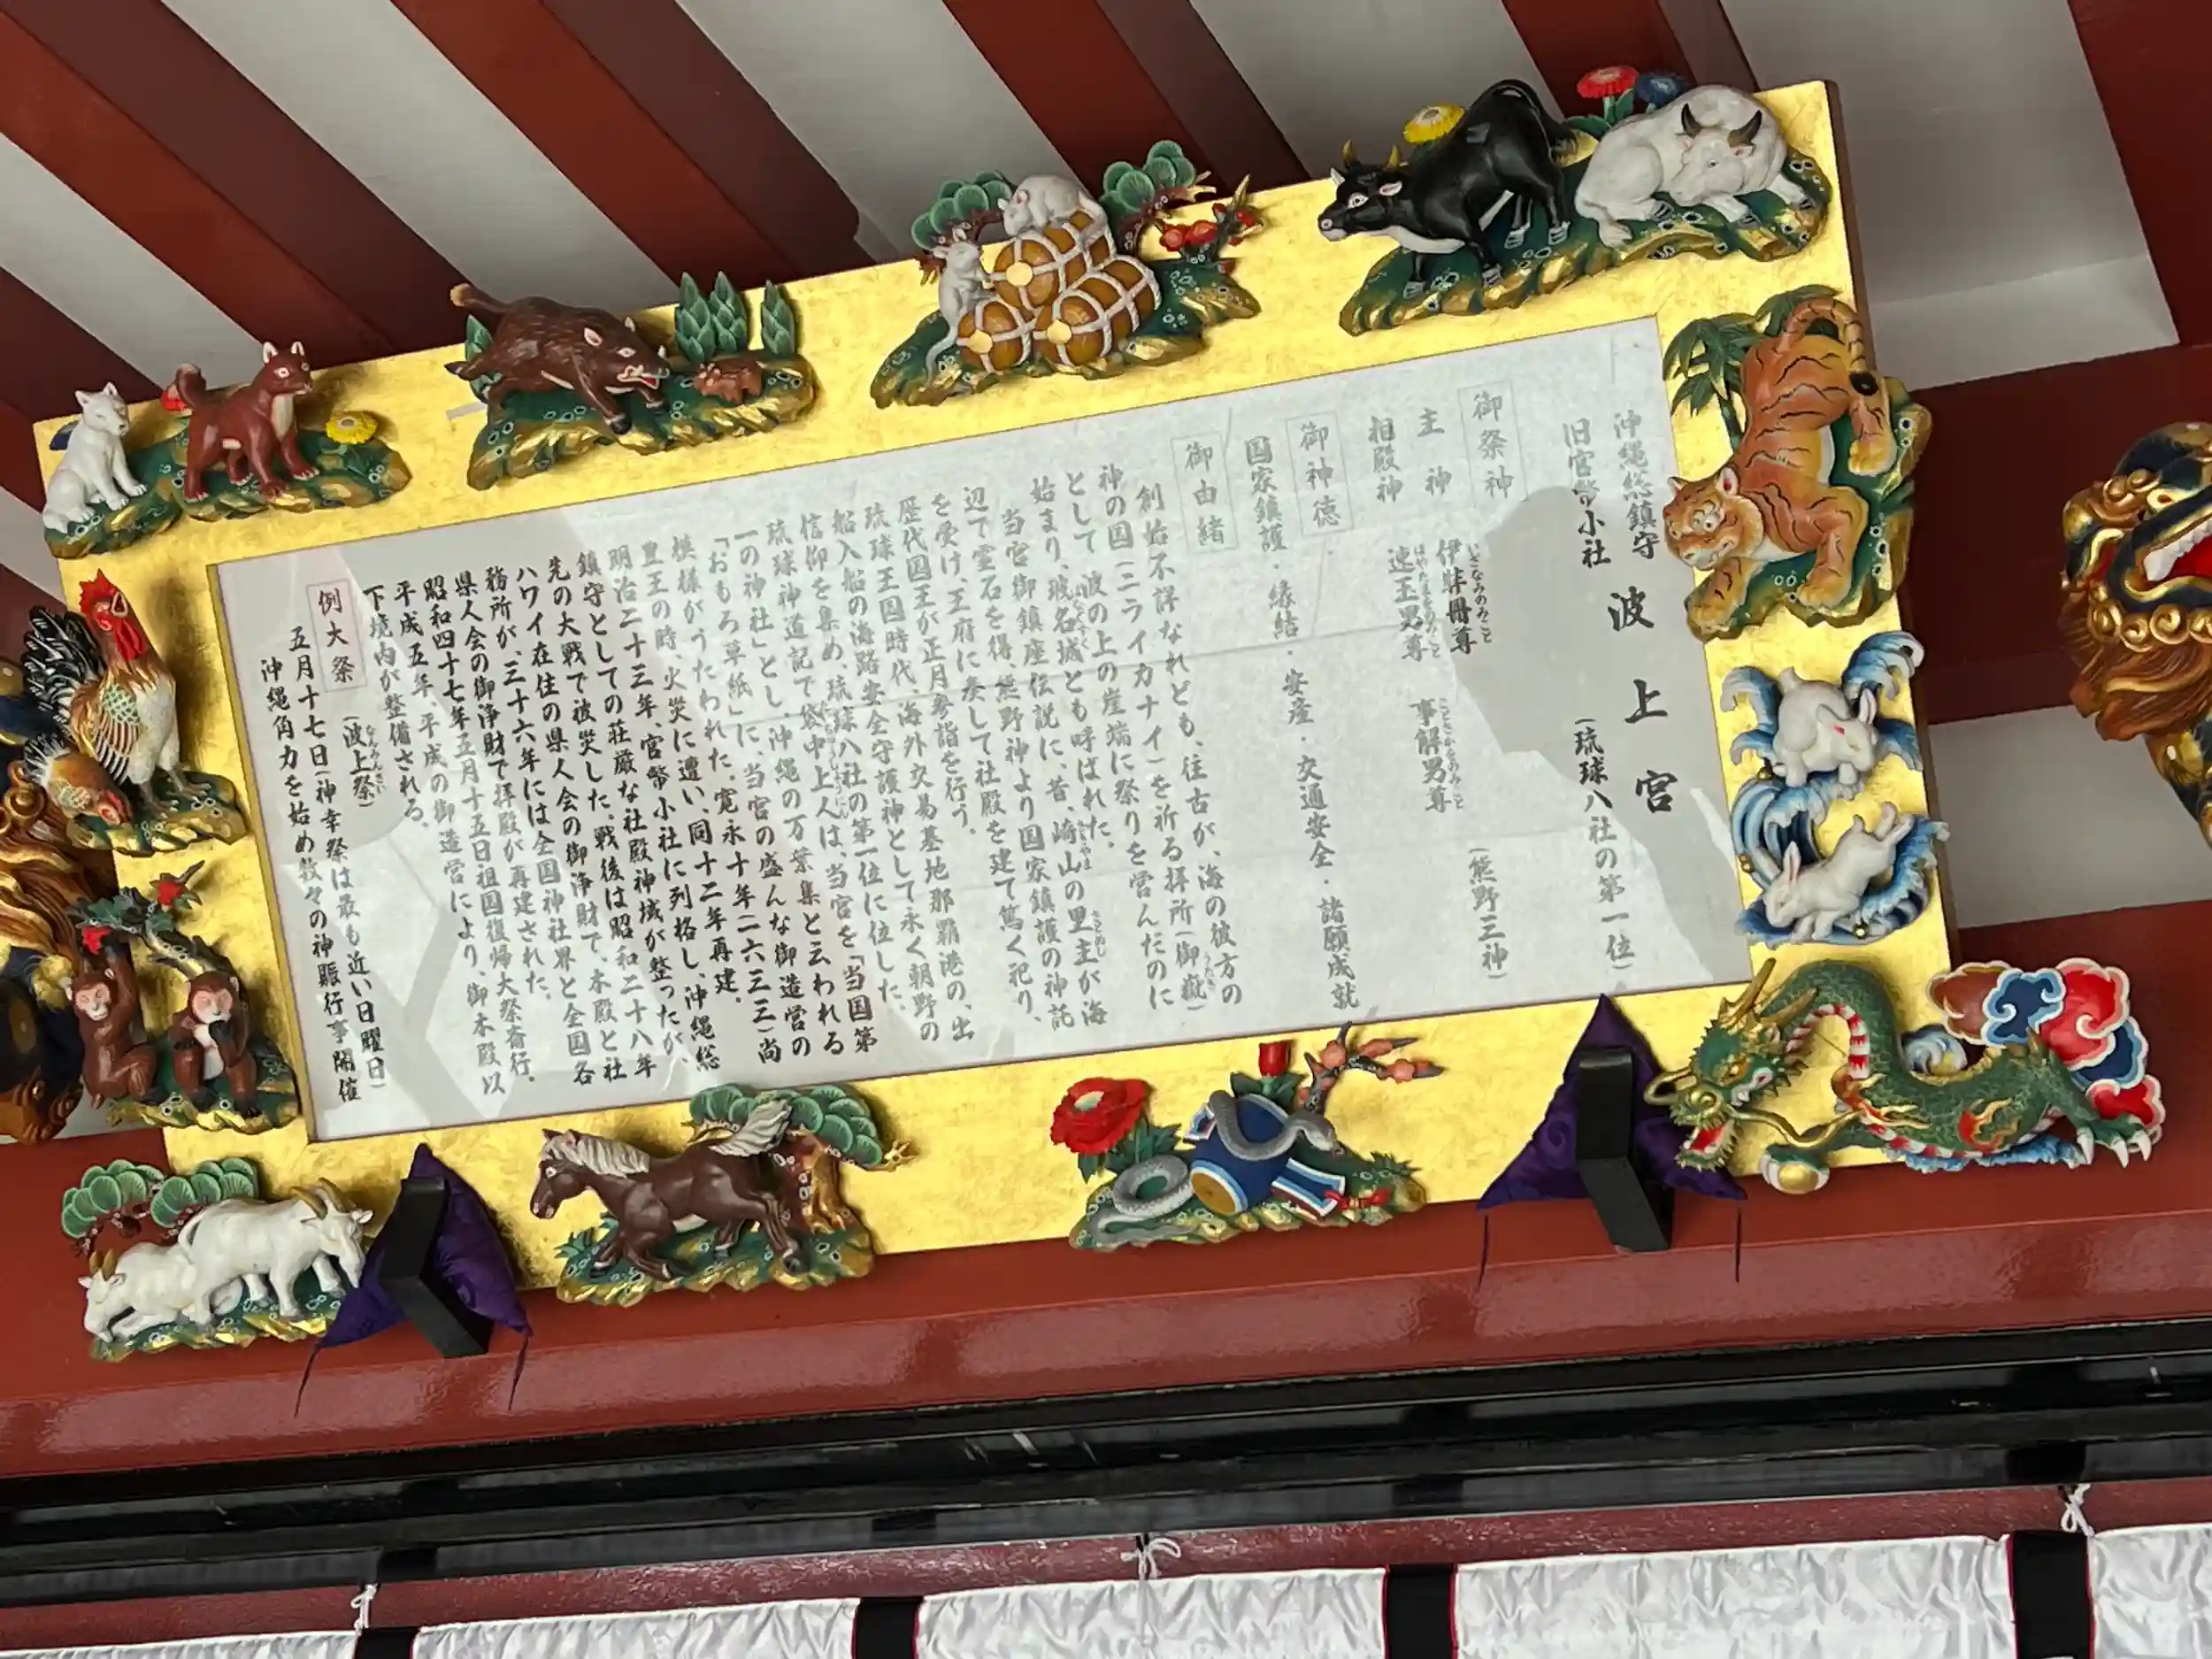 沖縄総鎮守
旧官幣小社
波上宮
(琉球八社の第一位)
御祭神
主神 伊弉冊尊
いざなみのみこと
相殿神 速玉男尊 事解男尊
はやたまをのみこと ことさかをのみこと
(熊野三神)
御神徳
国家鎮護・縁結・安産・交通安全・諸願成就
御由緒
創始不詳なれども、往古が、海の彼方の
神の国(ニライカナイ)を祈る拝所(御嶽)
として波の上の崖端に祭りを営んだのに
始まり、波名城とも呼ばれた。
当宮御鎮座伝説に、昔、崎山の里主が海
辺で霊石を得、熊野神より国家鎮護の神託
を受け、王府に奏して社殿を建て篤く祀り、
歴代国王が正月参詣を行う。
琉球王国時代、海外交易基地那覇港の、出
船入船の海路安全守護神として永く朝野の
信仰を集め、琉球八社の第一位に位した。
琉球神道記で袋中上人は、当宮を「当国第
一の神社」とし、沖縄の万葉集と云われる
「おもろ草紙」に、当宮の盛んな御造営の
模様がうたわれた。寛永十年(一六三三)尚
豊王の時、火災に遭い、同十二年再建。
明治二十三年、官幣小社に列格し、沖縄総
鎮守としての荘厳な社殿神域が整ったが、
先の大戦で被災した。戦後は昭和二十八年
ハワイ在住の県人会の御浄財で、本殿と社
務所が、三十六年には全国神社界と全国各
県人会の御浄財で拝殿が再建された。
昭和四十七年五月十五日祖国復帰大祭斎行。
平成五年、平成の御造営により、御本殿以
下境内が整備される。
例大祭 (波上祭)
なんみんさい
五月十七日(神幸祭は最も近い日曜日)
沖縄角力を始め数々の神賑行事開催